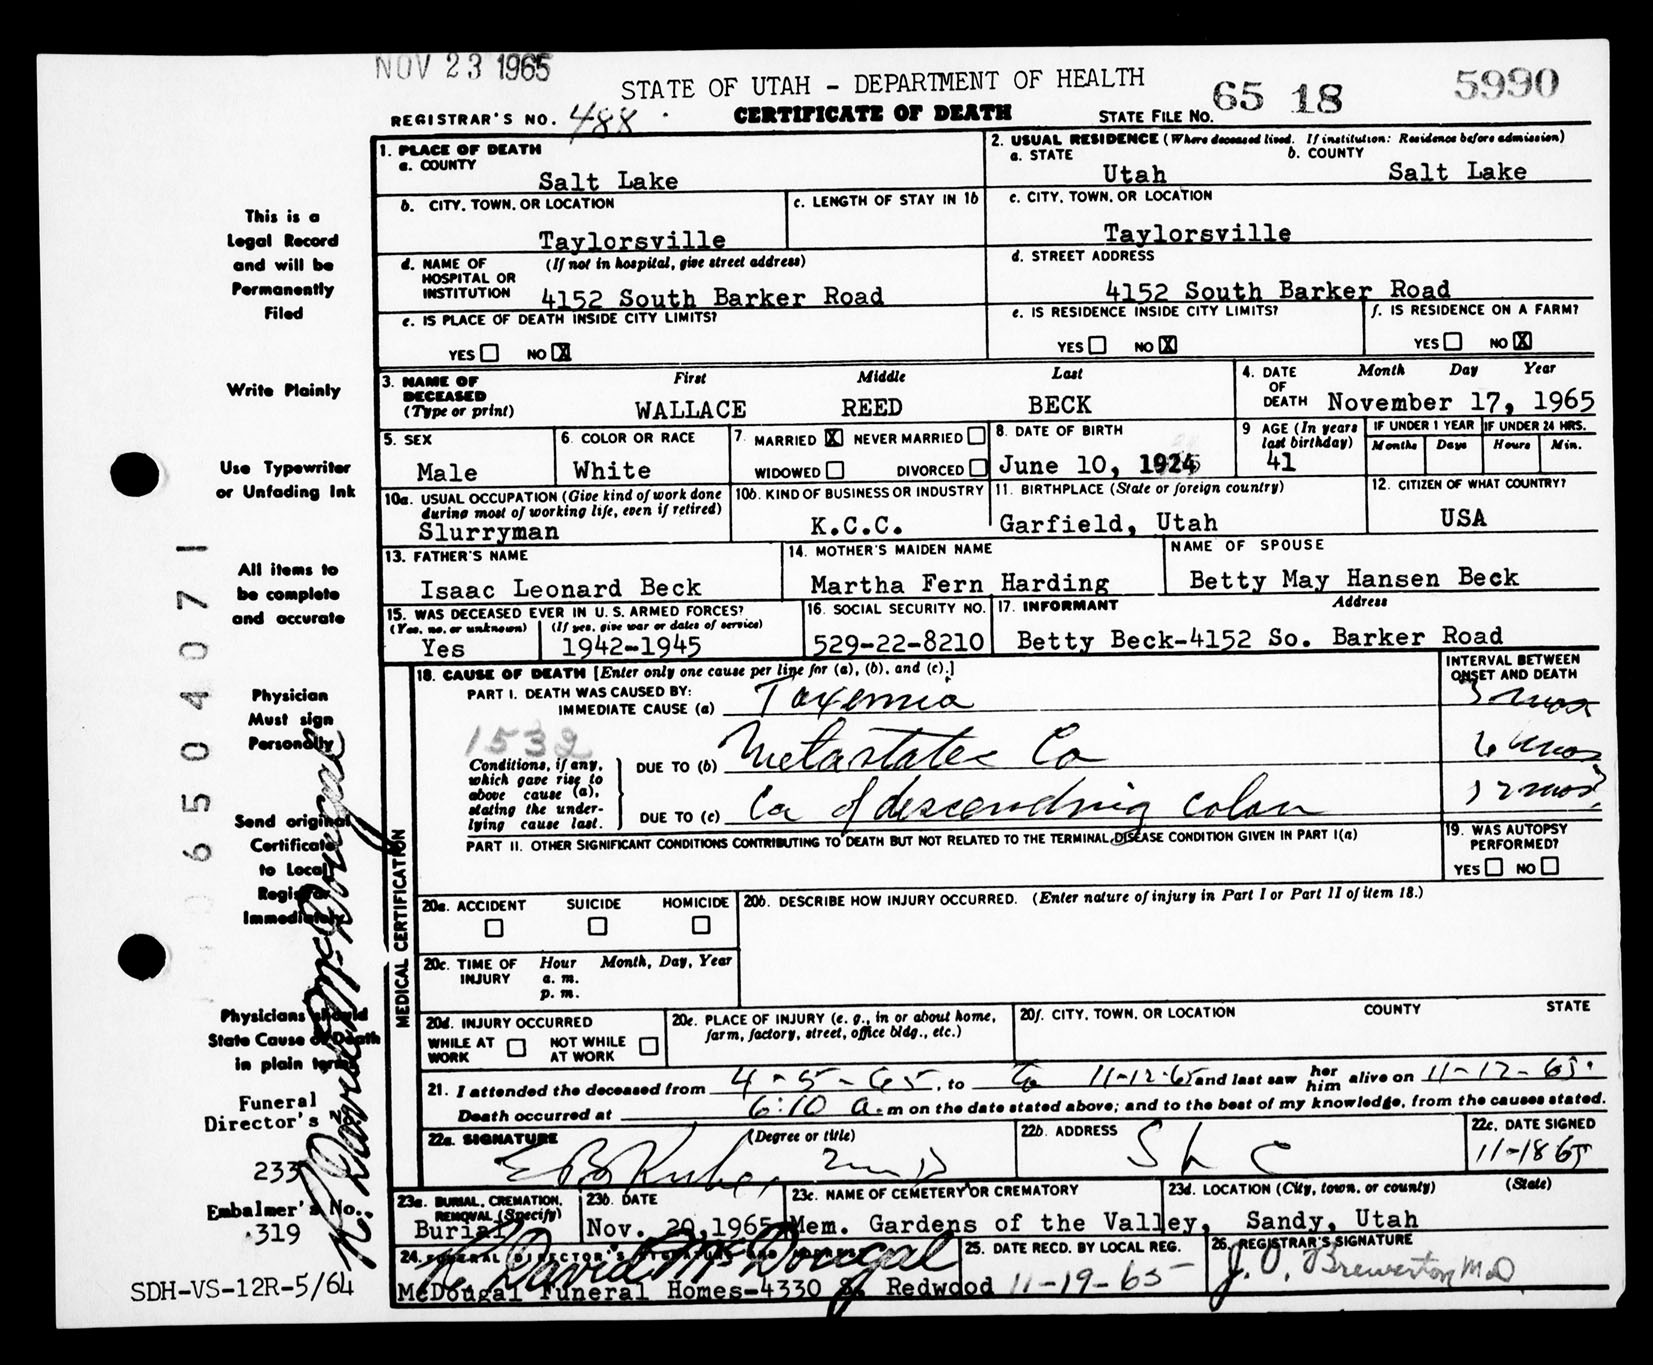 NOV 23 1965
STATE OF UTAH - DEPARTMENT OF HEALTH
65 18 5990
REGISTRAR'S NO. 488 CERTIFICATE OF DEATH STATE FILE NO.
1. PLACE OF DEATH
a. COUNTY
Salt Lake
2. USUAL RESIDENCE (Where deceased lived. If institution: Residence before admission)
a. STATE b. COUNTY
Utah Salt Lake
b. CITY, TOWN, OR LOCATION
Taylorsville
c. LENGTH OF STAY IN 1b
c. CITY, TOWN, OR LOCATION
Taylorsville
d. NAME OF HOSPITAL OR INSTITUTION (If not in hospital, give street address)
4152 South Barker Road
d. STREET ADDRESS
4152 South Barker Road
e. IS PLACE OF DEATH INSIDE CITY LIMITS?
YES NO X
e. IS RESIDENCE INSIDE CITY LIMITS?
YES NO X
f. IS RESIDENCE ON A FARM?
YES NO X
3. NAME OF DECEASED (Type or print)
First Middle Last
WALLACE REED BECK
4. DATE OF DEATH Month Day Year
November 17, 1965
5. SEX
Male
6. COLOR OR RACE
White
7. MARRIED X NEVER MARRIED
WIDOWED DIVORCED
8. DATE OF BIRTH
June 10, 1924
9 AGE (In years last birthday)
41
IF UNDER 1 YEAR
Months Days
IF UNDER 24 HRS.
Hours Min.
10a. USUAL OCCUPATION (Give kind of work done during most of working life, even if retired)
Slurryman
10b. KIND OF BUSINESS OR INDUSTRY
K.C.C.
11. BIRTHPLACE (State or foreign country)
Garfield, Utah
12. CITIZEN OF WHAT COUNTRY?
USA
13. FATHER'S NAME
Isaac Leonard Beck
14. MOTHER'S MAIDEN NAME
Martha Fern Harding
NAME OF SPOUSE
Betty May Hansen Beck
15. WAS DECEASED EVER IN U.S. ARMED FORCES?
(Yes, no, or unknown) (If yes, give war or dates of service)
Yes 1942-1945
16. SOCIAL SECURITY NO.
529-22-8210
17. INFORMANT Address
Betty Beck-4152 So. Barker Road
MEDICAL CERTIFICATION
18. CAUSE OF DEATH [Enter only one cause per line for (a), (b), and (c).]
INTERVAL BETWEEN ONSET AND DEATH
PART I. DEATH WAS CAUSED BY:
IMMEDIATE CAUSE (a) Toxemia 3 mos
1532
Conditions, if any, which gave rise to above cause (a), stating the underlying cause last.
DUE TO (b) Metastatic Ca 6 mos
DUE TO (c) Ca of descending colon 12 mos
PART II. OTHER SIGNIFICANT CONDITIONS CONTRIBUTING TO DEATH BUT NOT RELATED TO THE TERMINAL DISEASE CONDITION GIVEN IN PART I(a)
19. WAS AUTOPSY PERFORMED?
YES NO
20a. ACCIDENT SUICIDE HOMICIDE
20b. DESCRIBE HOW INJURY OCCURRED. (Enter nature of injury in Part I or Part II of item 18.)
20c. TIME OF INJURY Hour Month, Day, Year
a. m.
p. m.
20d. INJURY OCCURRED
WHILE AT WORK NOT WHILE AT WORK
20e. PLACE OF INJURY (e. g., in or about home, farm, factory, street, office bldg., etc.)
20f. CITY, TOWN, OR LOCATION COUNTY STATE
21. I attended the deceased from 4-5-65, to 11-12-65 and last saw her him alive on 11-12-65.
Death occurred at 6:10 a.m on the date stated above; and to the best of my knowledge, from the causes stated.
22a. SIGNATURE (Degree or title)
22b. ADDRESS
S L C
22c. DATE SIGNED
11-18 65
23a. BURIAL, CREMATION, REMOVAL (Specify)
Burial
23b. DATE
Nov. 20, 1965
23c. NAME OF CEMETERY OR CREMATORY
Mem. Gardens of the Valley,
23d. LOCATION (City, town, or county) (State)
Sandy, Utah
24. FUNERAL DIRECTOR'S SIGNATURE AND ADDRESS
R. David McDougal
McDougal Funeral Homes-4330 S. Redwood
25. DATE RECD. BY LOCAL REG.
11-19-65
26. REGISTRAR'S SIGNATURE
J. O. Brewerton MD
This is a
Legal Record
and will be
Permanently
Filed
Write Plainly
Use Typewriter
or Unfading Ink
All items to
be complete
and accurate
Physician
Must sign
Personally
Send original
Certificate
to Local
Registrar
Immediately
Physicians should
State Cause of Death
in plain terms
Funeral
Director's
233
Embalmer's No.
319
R. David McDougal
0650 4071
SDH-VS-12R-5/64